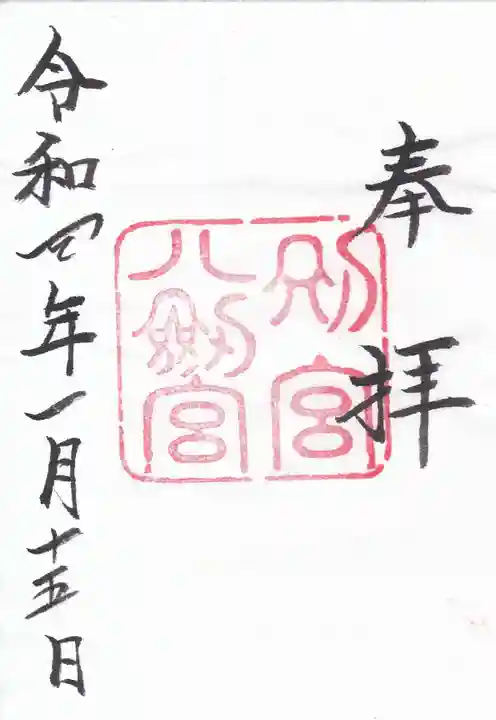 奉拝
別宮
八剱宮
令和四年一月十五日